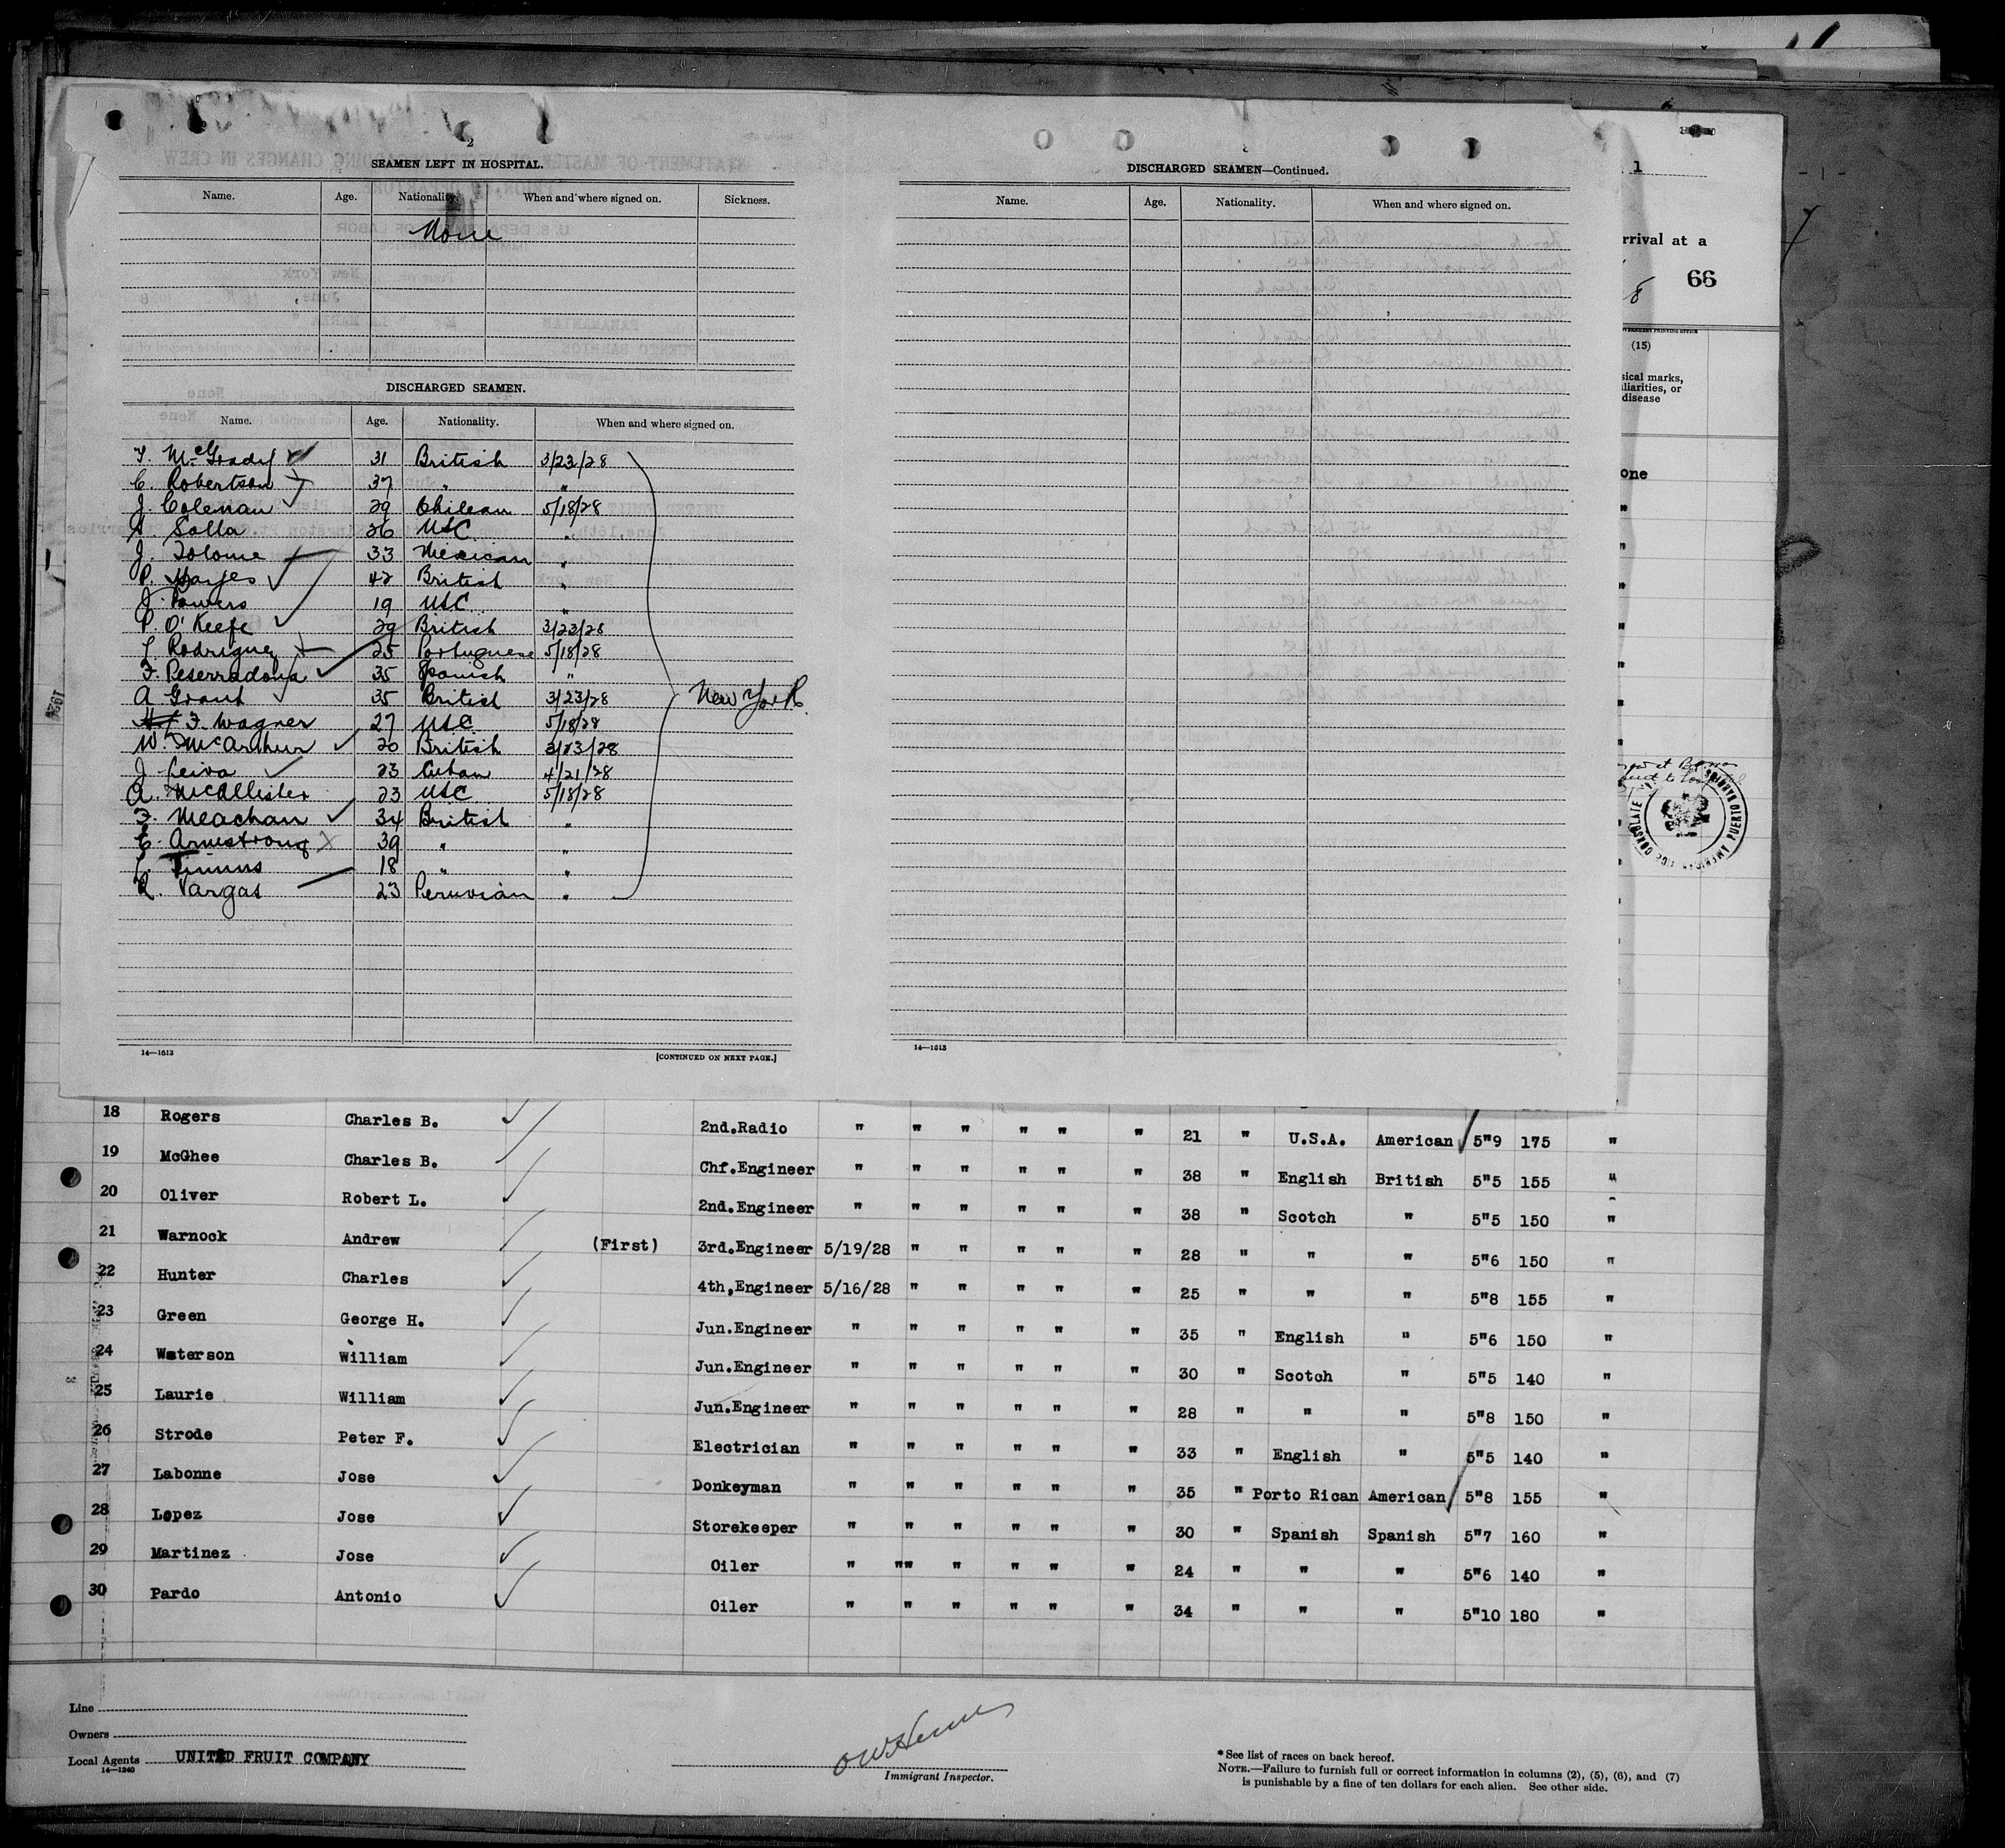 2
SEAMEN LEFT IN HOSPITAL.
Name. Age. Nationality. When and where signed on. Sickness.
None
DISCHARGED SEAMEN.
Name. Age. Nationality. When and where signed on.
McGrady 31 British 3/23/28
C. Robertson 37 " "
J. Coleman 29 Chilean 5/18/28
Salla 26 USC "
J. Tolome 33 Mexican "
P. Hayes 42 British "
J. Powers 19 USC "
P. O'Keefe 29 British 3/23/28
Rodriguez 25 Portuguese 5/18/28
F. 35 Spanish "
A Grant 35 British 3/23/28
New York
F. Wagner 27 USC 5/18/28
W. McArthur 20 British 3/23/28
J. Leiva 23 Cuban 4/21/28
A. McAllister 23 USC 5/18/28
F. Meachan 34 British "
E. Armstrong 39 " "
Timms 18 " "
R. Vargas 23 Peruvian "
14—1613
[CONTINUED ON NEXT PAGE.]
DISCHARGED SEAMEN—Continued.
Name. Age. Nationality. When and where signed on.
14—1613
1
rrival at a
8 66
(15)
sical marks,
liarities, or
disease
one
AMERICAN CONSULATE PUERTO BARRIOS
18 Rogers Charles B. 2nd.Radio " " " " " " 21 " U.S.A. American 5"9 175 "
19 McGhee Charles B. Chf.Engineer " " " " " " 38 " English British 5"5 155 "
20 Oliver Robert L. 2nd.Engineer " " " " " " 38 " Scotch " 5"5 150 "
21 Warnock Andrew (First) 3rd.Engineer 5/19/28 " " " " " 28 " " " 5"6 150 "
22 Hunter Charles 4th,Engineer 5/16/28 " " " " " 25 " " " 5"8 155 "
23 Green George H. Jun.Engineer " " " " " " 35 " English " 5"6 150 "
24 Waterson William Jun.Engineer " " " " " " 30 " Scotch " 5"5 140 "
25 Laurie William Jun.Engineer " " " " " " 28 " " " 5"8 150 "
26 Strode Peter F. Electrician " " " " " " 33 " English " 5"5 140 "
27 Labonne Jose Donkeyman " " " " " " 35 " Porto Rican American 5"8 155 "
28 Lopez Jose Storekeeper " " " " " " 30 " Spanish Spanish 5"7 160 "
29 Martinez Jose Oiler " "" " " " " 24 " " " 5"6 140 "
30 Pardo Antonio Oiler " " " " " " 34 " " " 5"10 180 "
Line
Owners
Local Agents UNITED FRUIT COMPANY
14—1240
Immigrant Inspector.
*See list of races on back hereof.
NOTE.—Failure to furnish full or correct information in columns (2), (5), (6), and (7)
is punishable by a fine of ten dollars for each alien. See other side.